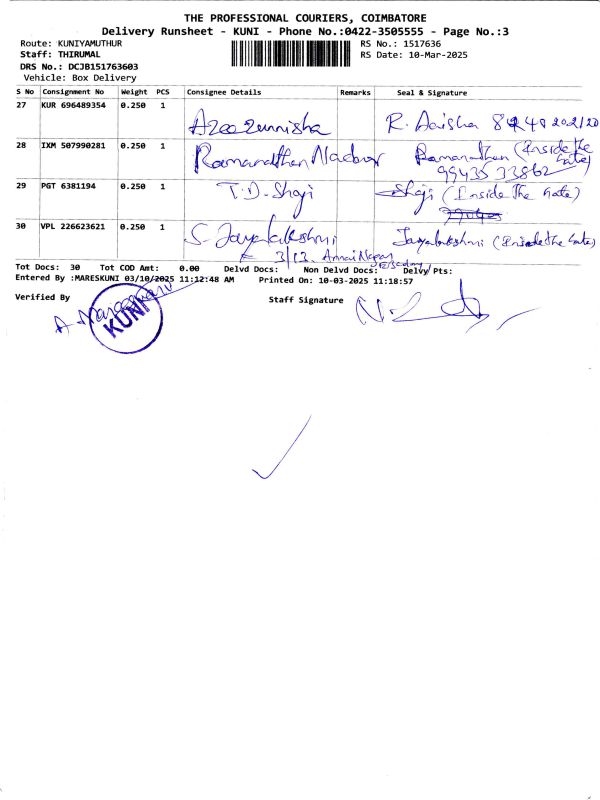 THE PROFESSIONAL COURIERS, COIMBATORE
Delivery Runsheet - KUNI - Phone No.:0422-3505555 - Page No.:3
Route: KUNIYAMUTHUR
RS No.: 1517636
Staff: THIRUMAL
RS Date: 10-Mar-2025
DRS No.: DCJB151763603
Vehicle: Box Delivery
S No Consignment No Weight PCS Consignee Details Remarks Seal & Signature
27 KUR 696489354 0.250 1
Azeezunnisha R. Aaisha
28 IXM 507990281 0.250 1
Ramanathan Ramanathan (Inside the Gate)
99435 33862
29 PGT 6381194 0.250 1
T.D. Shaji Shaji (Inside The Gate)
30 VPL 226623621 0.250 1
S. Jayalakshmi Jayalakshmi (Inside The Gate)
3/13. Annai Nagar
Tot Docs: 30 Tot COD Amt: 0.00 Delvd Docs: Non Delvd Docs: Delvy Pts:
Entered By :MARESKUNI 03/10/2025 11:12:48 AM Printed On: 10-03-2025 11:18:57
Verified By
Staff Signature
KUNI